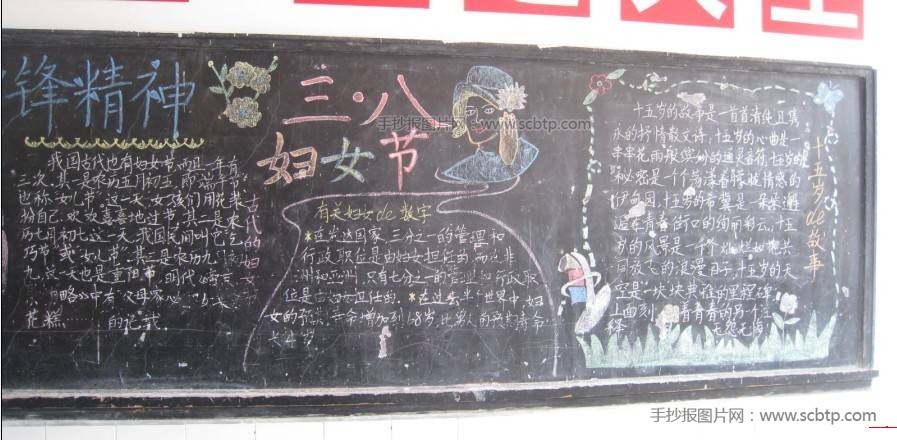 锋精神
三·八
妇女节
我国古代也有妇女节,而且一年有
三次,其一是农历五月初五,即端午节
也称女儿节。这一天,女孩们用花装
扮自己,欢欢喜喜地过节,其二是农
历七月初七,这一天,我国民间叫它乞
巧节,或女儿节。其三是农历九月初
九,这一天也是重阳节,明代
中有"父母家必
花糕……的记载.
古代的妇女
有关妇女de数字
*在发达国家,三分之一的管理和
行政职位是由妇女担任的,而在非
洲和亚洲,只有七分之一的管理和行政职
位是由妇女担任的.*在过去半世界中,妇
女的预
长4岁
十五岁de故事
十五岁的故事是一首首清纯且隽
永的抒情散文诗,十五岁的心曲是一
串串花雨缤纷的
秘密是一个荡漾着朦胧情感的
伊甸园,十五岁的希望是一朵朵邂
逅在青春街口的绚丽彩云,十五
岁的风景是一个个灿烂如花
同放飞的浪漫日子,十五岁的天
空是一块块典雅的里程碑,
上面刻着青青的另一个注
释 无怨无悔
手抄报图片网:www.scbtp.com
手抄报图片网:www.scbtp.com